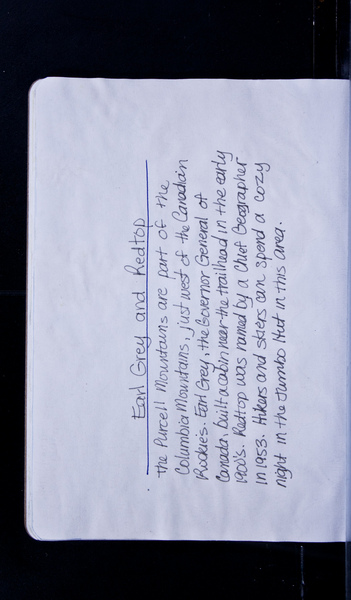 Earl Grey and Redtop
the Purcell Mountains are part of the
Columbia Mountains, just west of the Canadian
Rockies. Earl Grey, the Governor General of
Canada, built a cabin near the trailhead in the early
1900's. Redtop was named by a Chief Geographer
in 1953. Hikers and skiers can spend a cozy
night in the Jumbo Hut in this area.